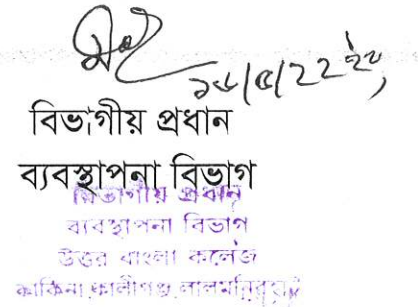 বিভাগীয় প্রধান
ব্যবস্থাপনা বিভাগ
বিভাগীয় প্রধান
ব্যবস্থাপনা বিভাগ
উত্তর বাংলা কলেজ
কাকিনা,কালীগঞ্জ,লালমনিরহাট